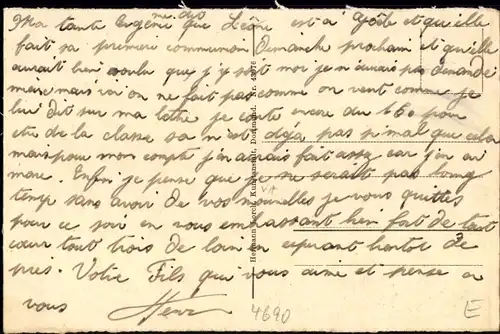 Ma tante Eugénie me dis que Léone est a et qu'elle
fait sa premiere communion Dimanche prochain et qu'elle
aurait bien voulu que j'y soit moi je n'aurais pas demandé
mieux mais ici on ne fait pas comme on veut comme je
lui dit sur ma lettre je conte encore du 160 pour
etre de la classe sa n'est deja pas si mal que cela
mais pour mon compte j'en aurais fait assez car j'en ai
mare. Enfin je pense que je ne serait pas long
temps sans avoir de vos nouvelles je vous quittes
pour ce soir en vous embrassant bien fort de tout
cœur tout trois de loin en esperant bientot de
pres. Votre Fils qui vous aime et pense a
vous
Hermann Lorch, Kunstanstalt, Dortmund. Nr.
4690
E